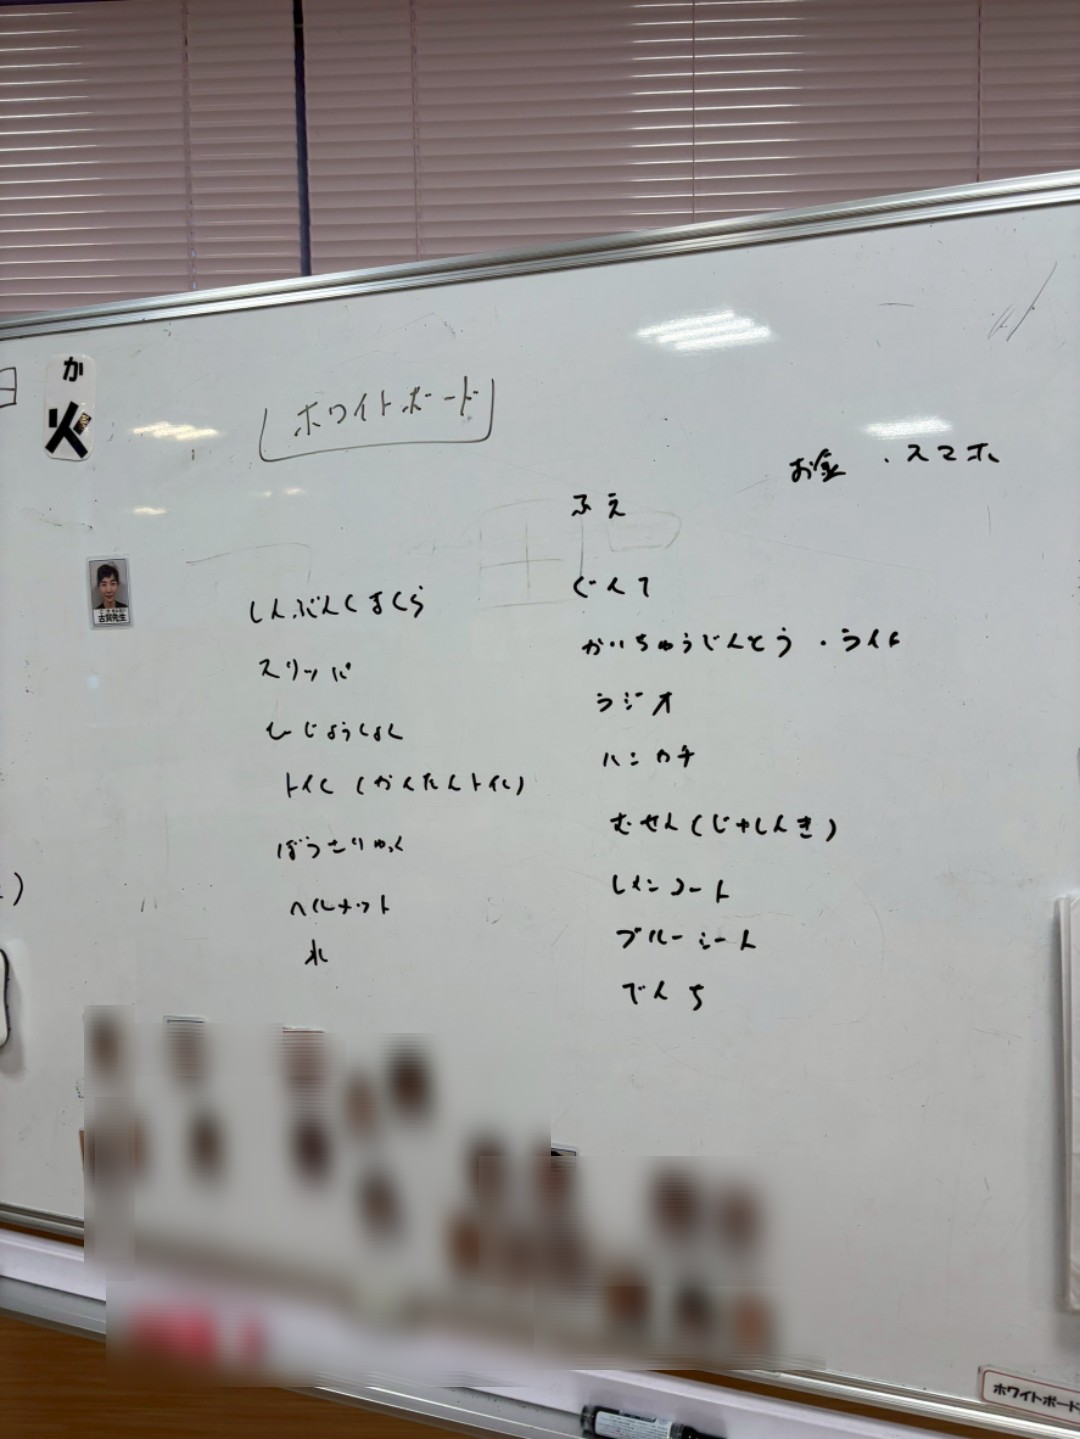 か
火
ホワイトボード
お金 ・スマホ
古賀先生
しんぶんくまくら
スリッパ
ひじょうしょく
トイレ (かんたんトイレ)
ぼうさいりゅっく
ヘルメット
水
ふえ
ぐんて
かいちゅうじんとう ・ライト
ラジオ
ハンカチ
むせん(じゅしんき)
レインコート
ブルーシート
でんち
ホワイトボード